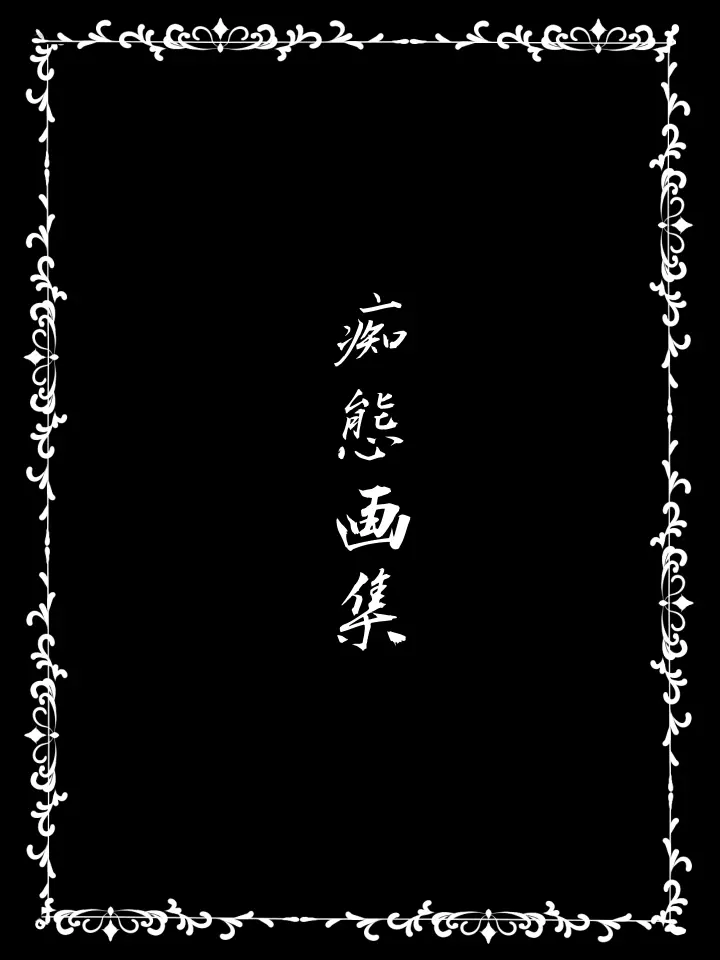 痴態画集